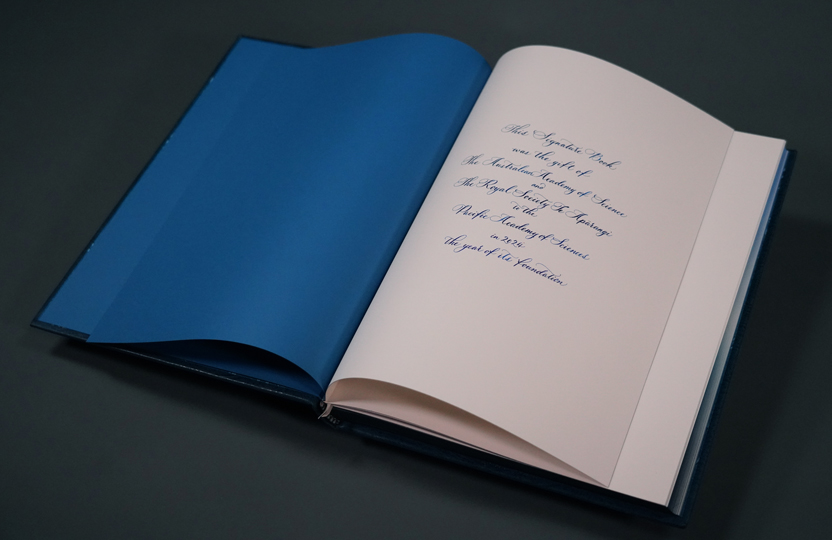 This Signature Book
was the gift of
The Australian Academy of Science
and
The Royal Society Te Apārangi
to the
Pacific Academy of Sciences
in 2024
the year of its foundation